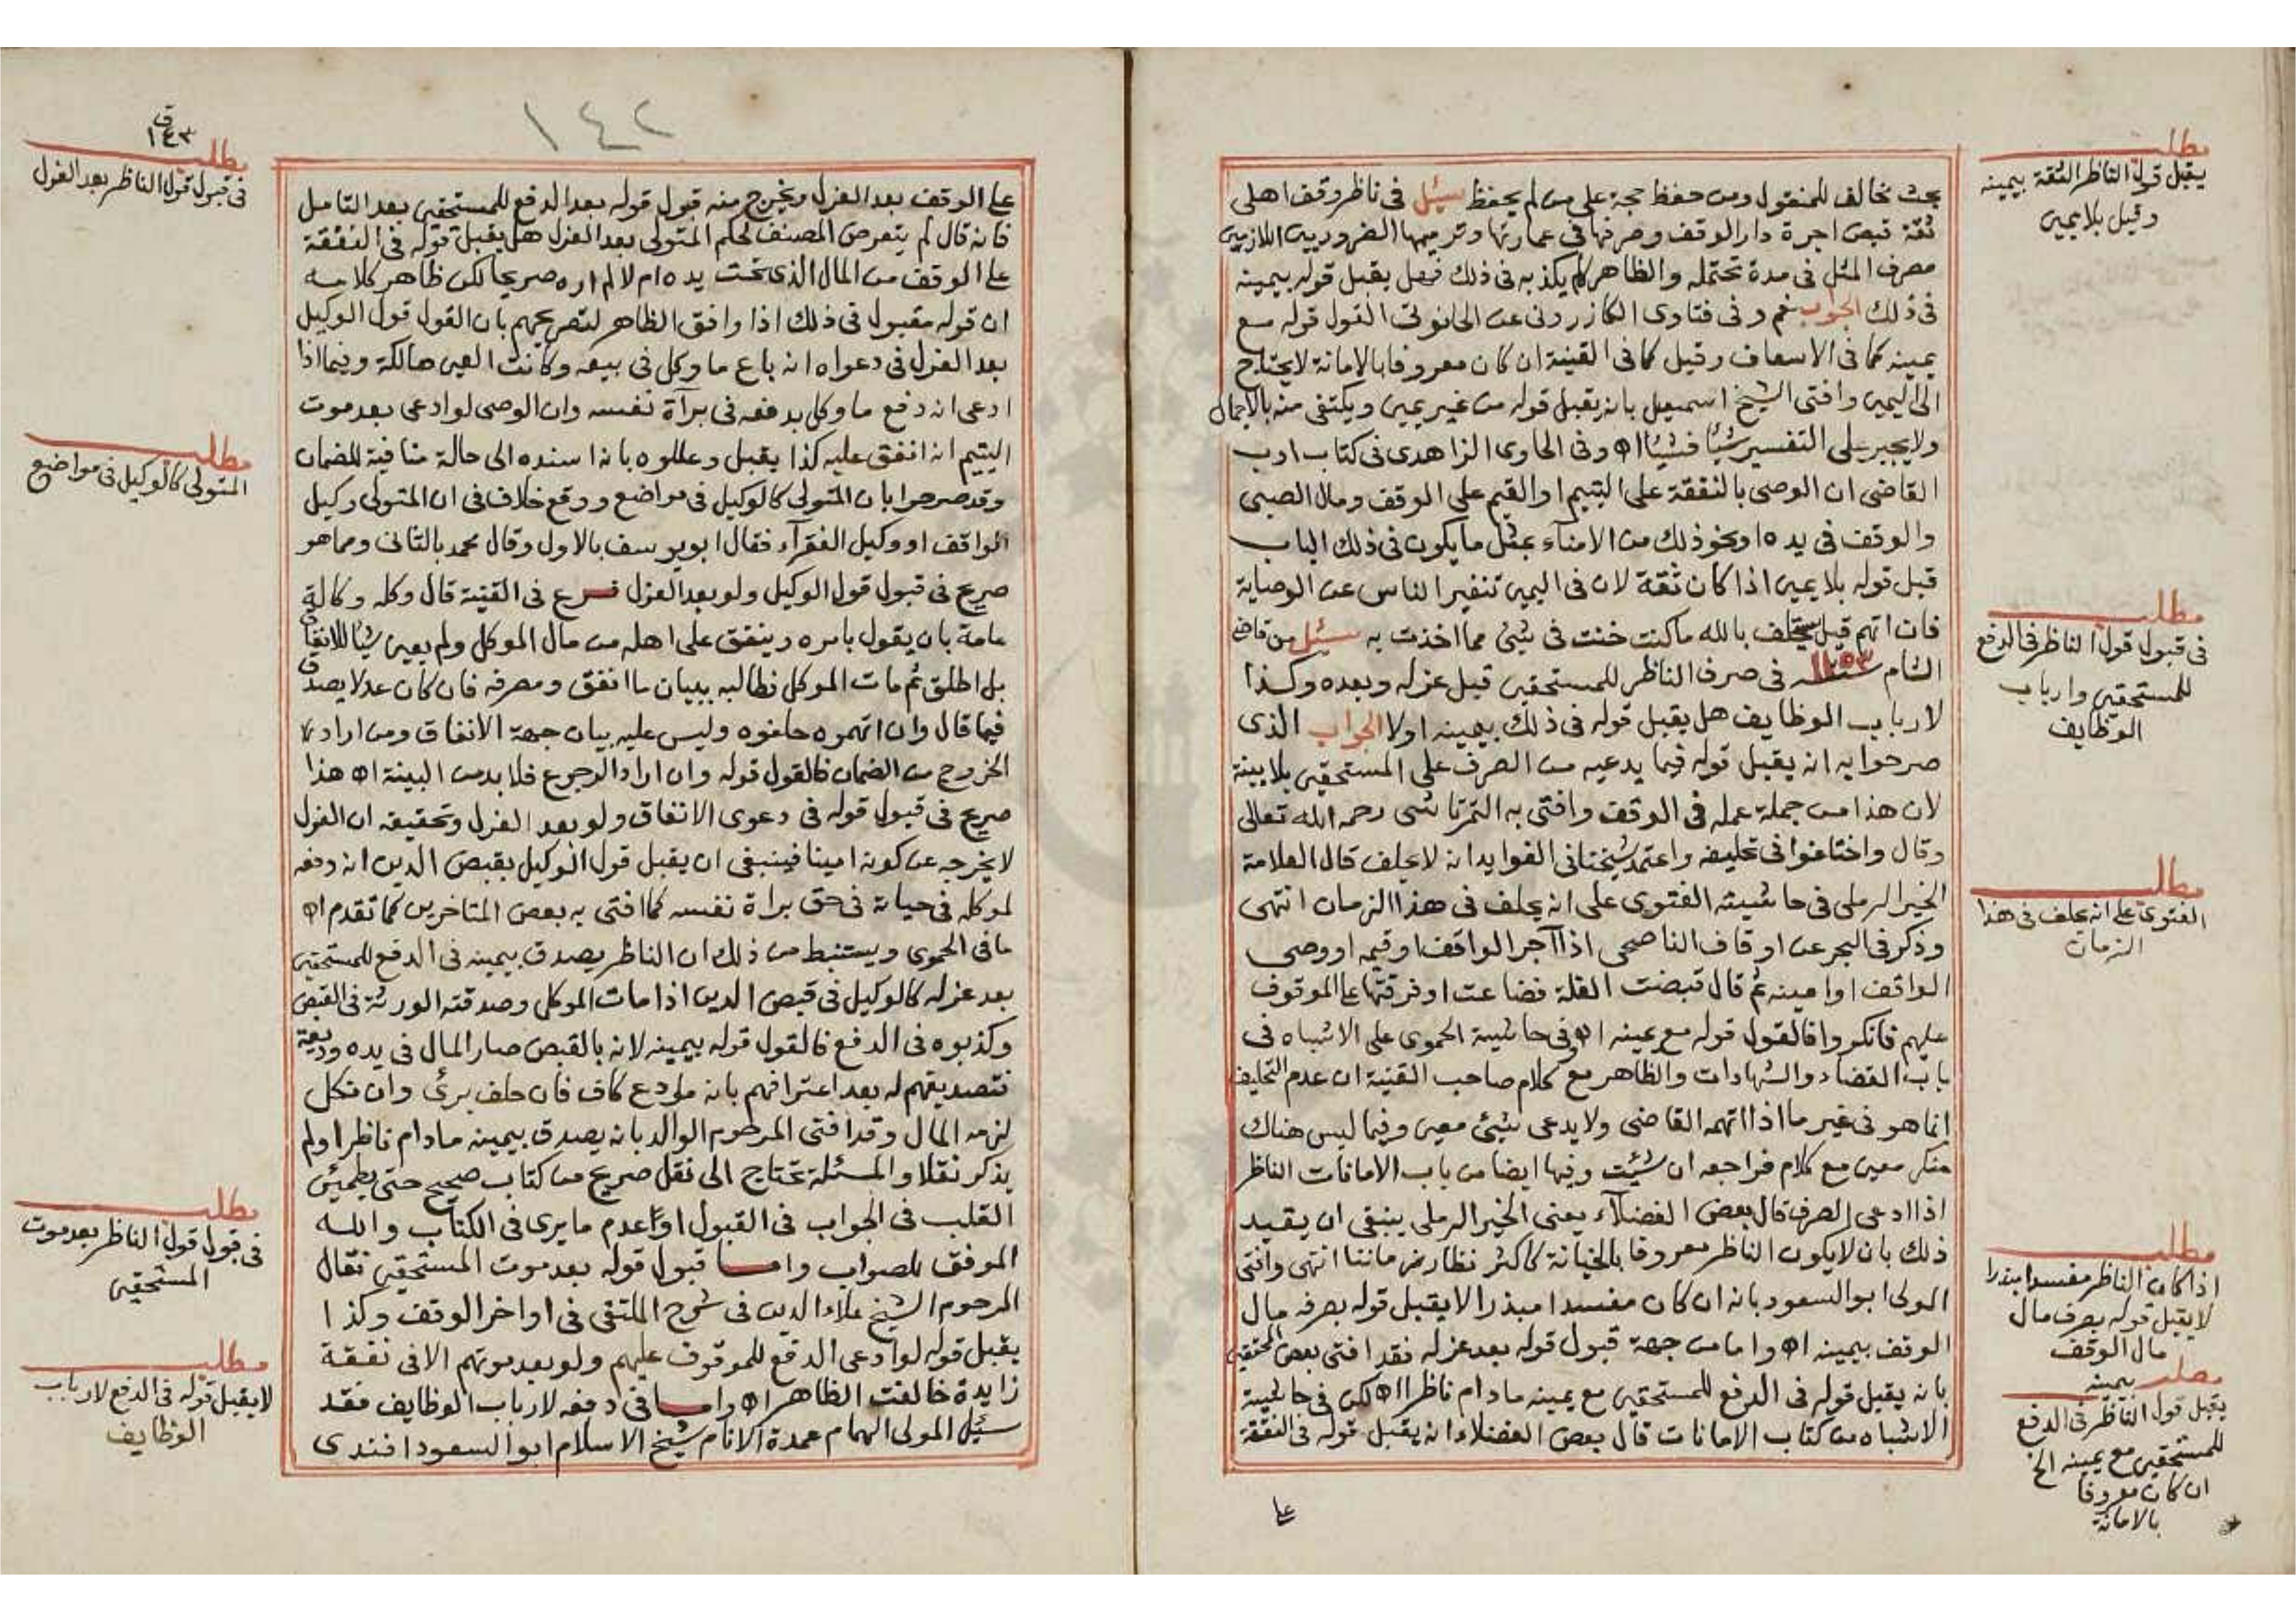 مطلب
يقبل قول الناظر الثقة بيمينه
وقيل بلا يمين
بحث مخالف للمنقول ومن حفظ حجة على من لم يحفظ سئل في ناظر وقف اهلى
ثقة قبض اجرة دار الوقف وصرفها في عمارتها وترميمها الضروريين اللازمين
مصرف المثل في مدة تحتمله والظاهر لم يكذبه في ذلك فهل يقبل قوله بيمينه
في ذلك الجواب نعم وفى فتاوى الكازرونى عن الحانوتى القول قوله مع
يمينه كما في الاسعاف وقيل كما في القنية ان كان معروفا بالامانة لا يحتاج
الى اليمين وافتى الشيخ اسمعيل بانه يقبل قوله من غير يمين ويكتفى منه بالاجمال
ولا يجبر على التفسير شيأ فشيأ اه وفى الحاوى الزاهدى فى كتاب ادب
القاضى ان الوصى بالنفقة على اليتيم او القيم على الوقف ومال الصبى
والوقف فى يده او نحو ذلك من الامناء بمثل ما يكون فى ذلك الباب
قبل قوله بلا يمين اذا كان ثقة لان فى اليمين تنفير الناس عن الوصاية
فان اتهم قيل يستحلف بالله ما كنت خنت فى شئ مما اخذت به سئل من قاضى
الشام سنة ١١٥٣ فى صرف الناظر للمستحقين قبل عزله وبعده وكذا
لارباب الوظايف هل يقبل قوله فى ذلك بيمينه اولا الجواب الذى
صرحوا به انه يقبل قوله فيما يدعيه من الصرف على المستحقين بلا بينة
لان هذا من جملة عمله فى الوقف وافتى به التمرتاشى رحمه الله تعالى
وقال واختلفوا فى تحليفه واعتمد شيخنا فى الفوايد انه لا يحلف قال العلامة
الخير الرملى فى حاشيته الفتوى على انه يحلف فى هذا الزمان انتهى
وذكر فى البحر عن اوقاف الناصحى اذا آجر الواقف او قيمه او وصى
الواقف او امينه ثم قال قبضت الغلة فضاعت او فرقتها على الموقوف
عليهم فانكروا فالقول قوله مع يمينه اه وفى حاشية الحموى على الاشباه فى
باب القضاء والشهادات والظاهر مع كلام صاحب القنية ان عدم التحليف
انما هو فى غير ما اذا اتهمه القاضى ولا يدعى شئ معين وفيما ليس هناك
منكر معين مع كلام فراجعه ان شئت وفيها ايضا من باب الامانات الناظر
اذا ادعى الصرف قال بعض الفضلاء يعنى الخير الرملى ينبغى ان يقيد
ذلك بان لا يكون الناظر معروفا بالخيانة كاكثر نظار زماننا انتهى وافتى
المولى ابو السعود بانه ان كان مفسدا مبذرا لا يقبل قوله بصرفه مال
الوقف بيمينه اه واما من جهة قبول قوله بعد عزله فقد افتى بعض المحققين
بانه يقبل قوله فى الدفع للمستحقين مع يمينه ما دام ناظرا اه لكن فى حاشية
الاشباه من كتاب الامانات قال بعض الفضلاء انه يقبل قوله فى النفقة
على
مطلب
فى قبول قول الناظر فى الدفع
للمستحقين وارباب
الوظايف
مطلب
الفتوى على انه يحلف فى هذا
الزمان
مطلب
اذا كان الناظر مفسدا مبذرا
لا يقبل قوله بصرف مال
مال الوقف
بيمينه
مطلب
يقبل قول الناظر فى الدفع
للمستحقين مع يمينه الخ
ان كان معروفا
بالامانة
١٤٢
ق
١٤٣
مطلب
فى قبول قول الناظر بعد العزل
على الوقف بعد العزل ويخرج منه قبول قوله بعد الدفع للمستحقين بعد التامل
فانه قال لم يتعرض المصنف لحكم المتولى بعد العزل هل يقبل قوله فى النفقة
على الوقف من المال الذى تحت يده ام لا لم اره صريحا لكن ظاهر كلامه
ان قوله مقبول فى ذلك اذا وافق الظاهر لتصريحهم بان القول قول الوكيل
بعد العزل فى دعواه انه باع ما وكل فى بيعه وكانت العين هالكة وفيما اذا
ادعى انه دفع ما وكل بدفعه فى برآة نفسه وان الوصى لو ادعى بعد موت
اليتيم انه انفق عليه كذا يقبل وعللوه بانه اسنده الى حالة منافية للضمان
وقد صرحوا بان المتولى كالوكيل فى مواضع ووقع خلاف فى ان المتولى وكيل
الواقف او وكيل الفقرآء فقال ابو يوسف بالاول وقال محمد بالثانى ومما هو
صريح فى قبول قول الوكيل ولو بعد العزل فرع فى القنية قال وكله وكالة
عامة بان يقول بامره وينفق على اهله من مال الموكل ولم يعين شيأ للانفاق
بل اطلق ثم مات الموكل فطالبه ببيان ما انفق ومصرفه فان كان عدلا يصدق
فيما قال وان اتهموه حلفوه وليس عليه بيان جهة الانفاق ومن اراد
الخروج من الضمان فالقول قوله وان اراد الرجوع فلا بد من البينة اه هذا
صريح فى قبول قوله فى دعوى الانفاق ولو بعد العزل وتحقيقه ان العزل
لا يخرجه عن كونه امينا فينبغى ان يقبل قول الوكيل بقبض الدين انه دفعه
لموكله فى حياته فى حق براة نفسه كما افتى به بعض المتاخرين كما تقدم اه
ما فى الحموى ويستنبط من ذلك ان الناظر يصدق بيمينه فى الدفع للمستحقين
بعد عزله كالوكيل فى قبض الدين اذا مات الموكل وصدقته الورثة فى القبض
وكذبوه فى الدفع فالقول قوله بيمينه لانه بالقبض صار المال فى يده وديعة
فتصديقهم له بعد اعترافهم بانه مودع كاف فان حلف برئ وان نكل
لزمه المال وقد افتى المرحوم الوالد بانه يصدق بيمينه ما دام ناظرا ولم
يذكر نقلا والمسئلة تحتاج الى نقل صريح من كتاب صحيح حتى يطمئن
القلب فى الجواب فى القبول او عدم ما يرى فى الكتاب والله
الموفق للصواب واما قبول قوله بعد موت المستحقين فقال
المرحوم الشيخ علاء الدين فى شرح الملتقى فى اواخر الوقف وكذا
يقبل قوله لو ادعى الدفع للموقوف عليهم ولو بعد موتهم الا فى نفقة
زايدة خالفت الظاهر اه واما فى دفعه لارباب الوظايف فقد
سئل المولى الهمام عمدة الانام شيخ الاسلام ابو السعود افندى
مطلب
المتولى كالوكيل فى مواضع
مطلب
فى قبول قول الناظر بعد موت
المستحقين
مطلب
لا يقبل قوله فى الدفع لارباب
الوظايف